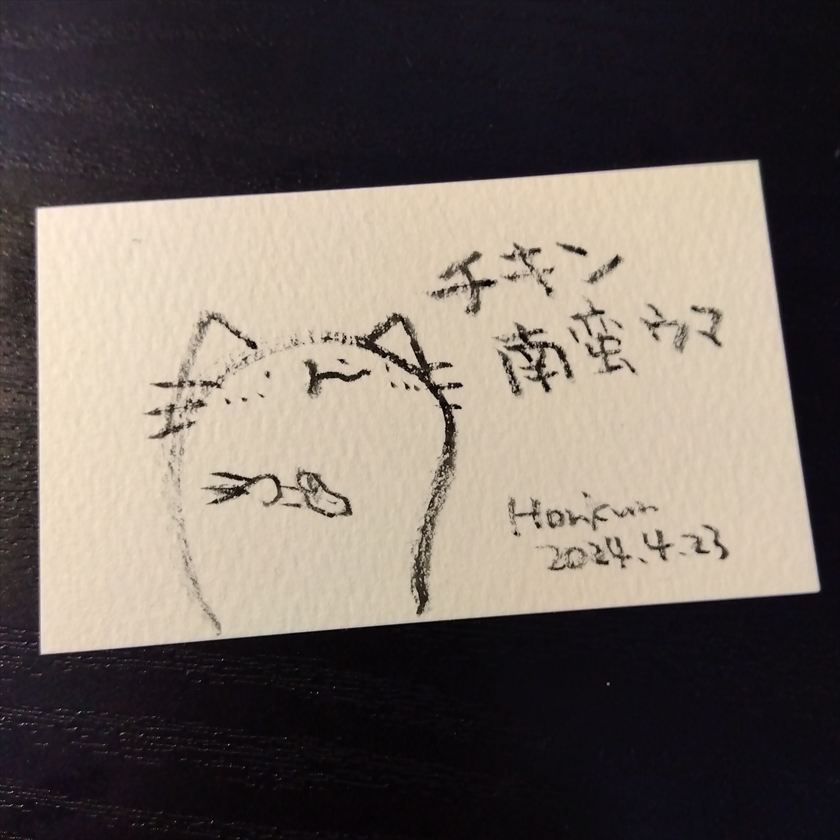 チキン
南蛮ウマ
Horikun
2024.4.23